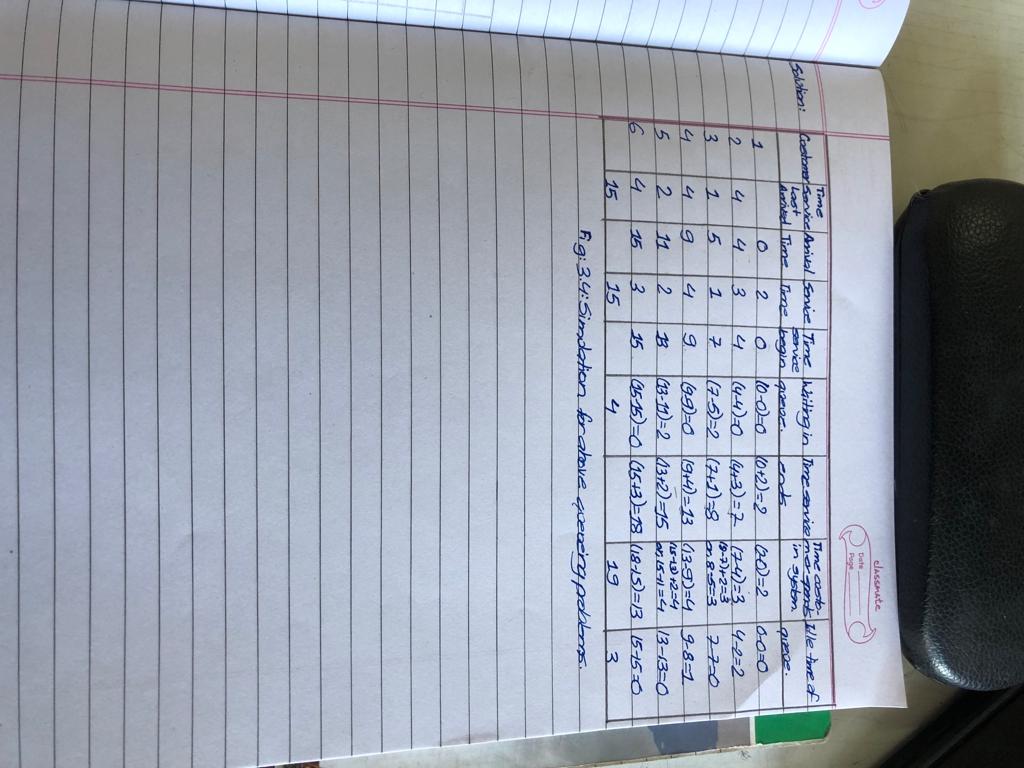 classmate
Date
Page
Solution:
Customer | Time Service Last Arrived | Arrival Time | Service Time | Time service begin | Waiting in queue. | Time service ends | Time customer spends in system | Idle time of queue.
1 | | 0 | 2 | 0 | (0-0)=0 | (0+2)=2 | (2-0)=2 | 0-0=0
2 | 4 | 4 | 3 | 4 | (4-4)=0 | (4+3)=7 | (7-4)=3 | 4-2=2
3 | 1 | 5 | 1 | 7 | (7-5)=2 | (7+1)=8 | (8-7)+2=3 or 8-5=3 | 7-7=0
4 | 4 | 9 | 4 | 9 | (9-9)=0 | (9+4)=13 | (13-9)=4 | 9-8=1
5 | 2 | 11 | 2 | 13 | (13-11)=2 | (13+2)=15 | (15-13)+2=4 or 15-11=4 | 13-13=0
6 | 4 | 15 | 3 | 15 | (15-15)=0 | (15+3)=18 | (18-15)=13 | 15-15=0
15 | 15 | 4 | 19 | 3
Fig: 3.4: Simulation for above queueing problems.